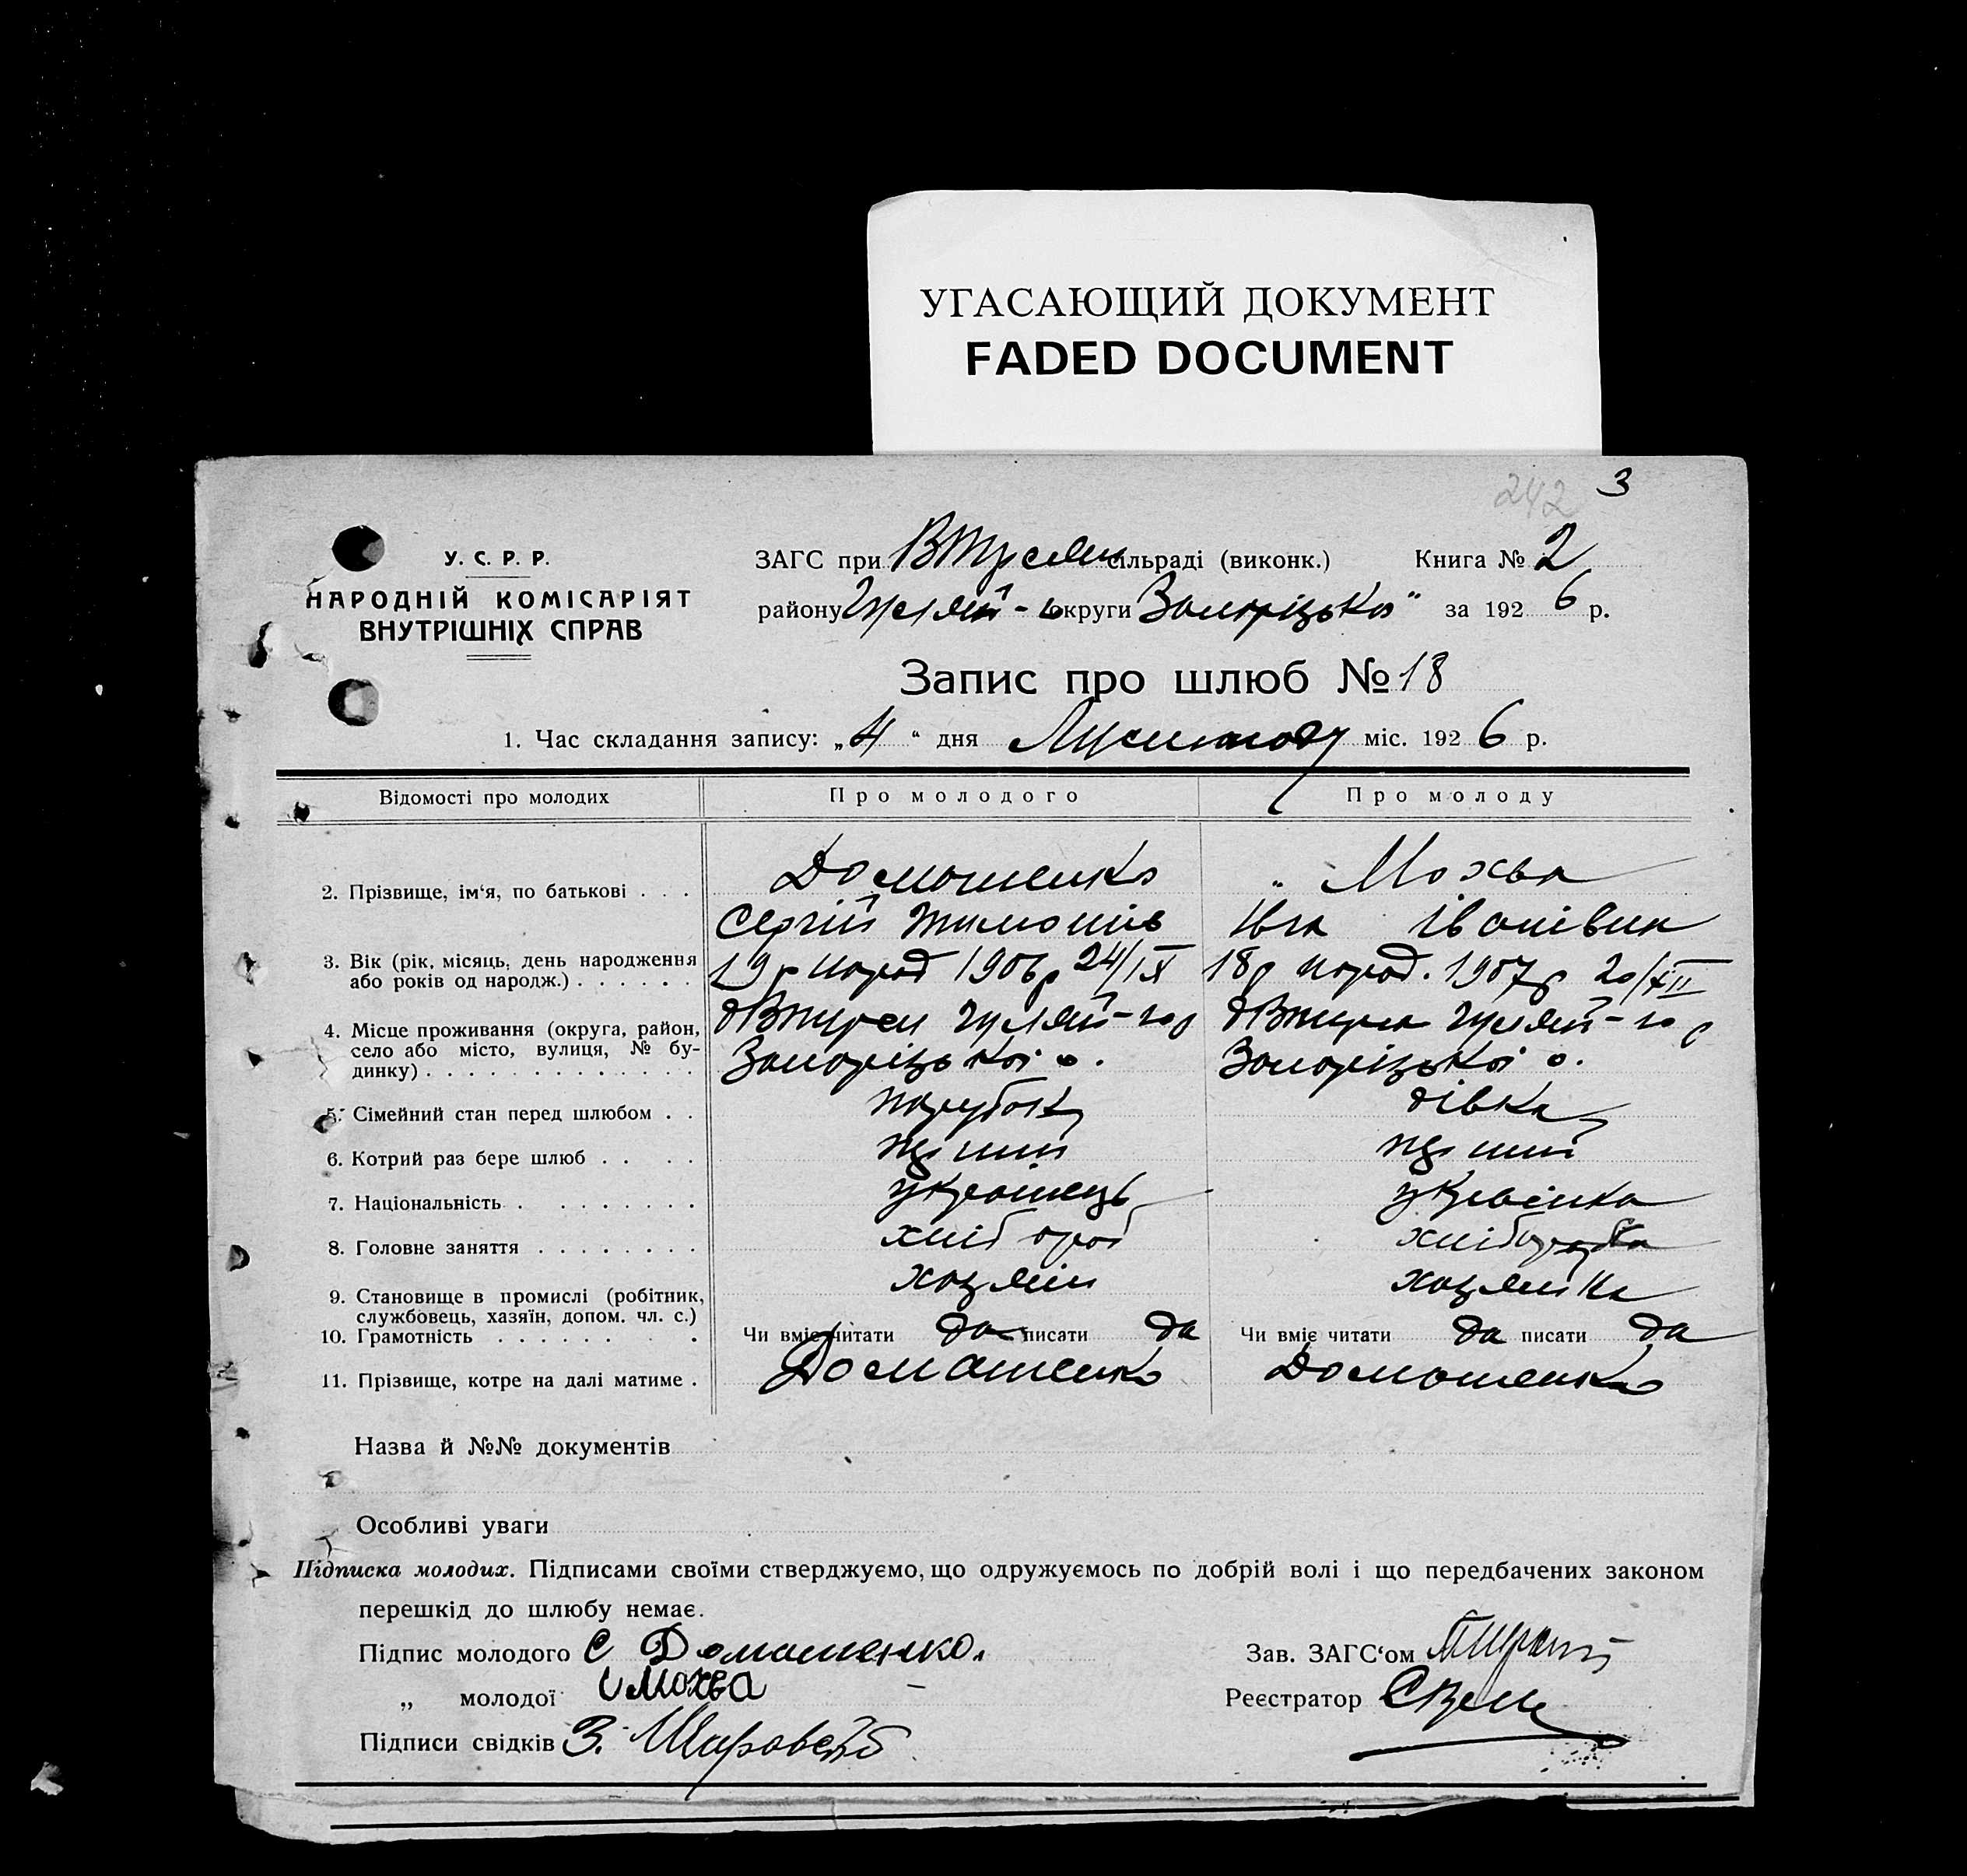 УГАСАЮЩИЙ ДОКУМЕНТ
FADED DOCUMENT
242 3
У. С. Р. Р.
НАРОДНІЙ КОМІСАРІЯТ
ВНУТРІШНІХ СПРАВ
ЗАГС при сільраді (виконк.) Книга № 2
району Гуляй- округи Запоріцько" за 1926 р.
Запис про шлюб № 18
1. Час складання запису: „4“ дня міс. 1926 р.
Відомості про молодих Про молодого Про молоду
2. Прізвище, ім‘я, по батькові . . . Домашенко Мохва
Сергій Тимошів Івга Іванівна
3. Вік (рік, місяць, день народження 19 р народ 1906 р 24/IX 18 р народ. 1907 р 20/XII
або років од народж.) . . . . . .
4. Місце проживання (округа, район, Гуляй- Гуляй-
село або місто, вулиця, № бу- Запоріцької о. Запоріцької о.
динку) . . . . . . . . . . . . .
5. Сімейний стан перед шлюбом . . парубок дівка
6. Котрий раз бере шлюб . . . .
7. Національність . . . . . . . . українець українка
8. Головне заняття . . . . . . . . хлібороб хліборобка
9. Становище в промислі (робітник, хазяїн хазяйка
службовець, хазяїн, допом. чл. с.)
10. Грамотність . . . . . . . . Чи вміє читати да писати да Чи вміє читати да писати да
11. Прізвище, котре на далі матиме . Домашенко Домашенко
Назва й №№ документів
Особливі уваги
Підписка молодих. Підписами своїми стверджуємо, що одружуємось по добрій волі і що передбачених законом
перешкід до шлюбу немає.
Підпис молодого С Домашенко. Зав. ЗАГС‘ом
„ молодої Мохва Реєстратор
Підписи свідків З.